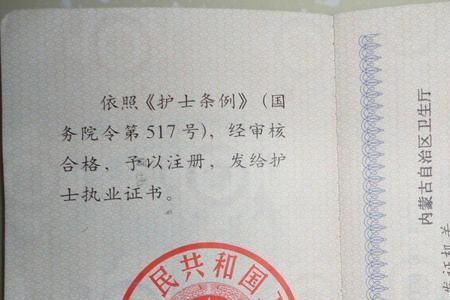 依照《护士条例》（国
务院令第517号），经审核
合格，予以注册，发给护
士执业证书。
民共和国
内蒙古自治区卫生厅
发证机关